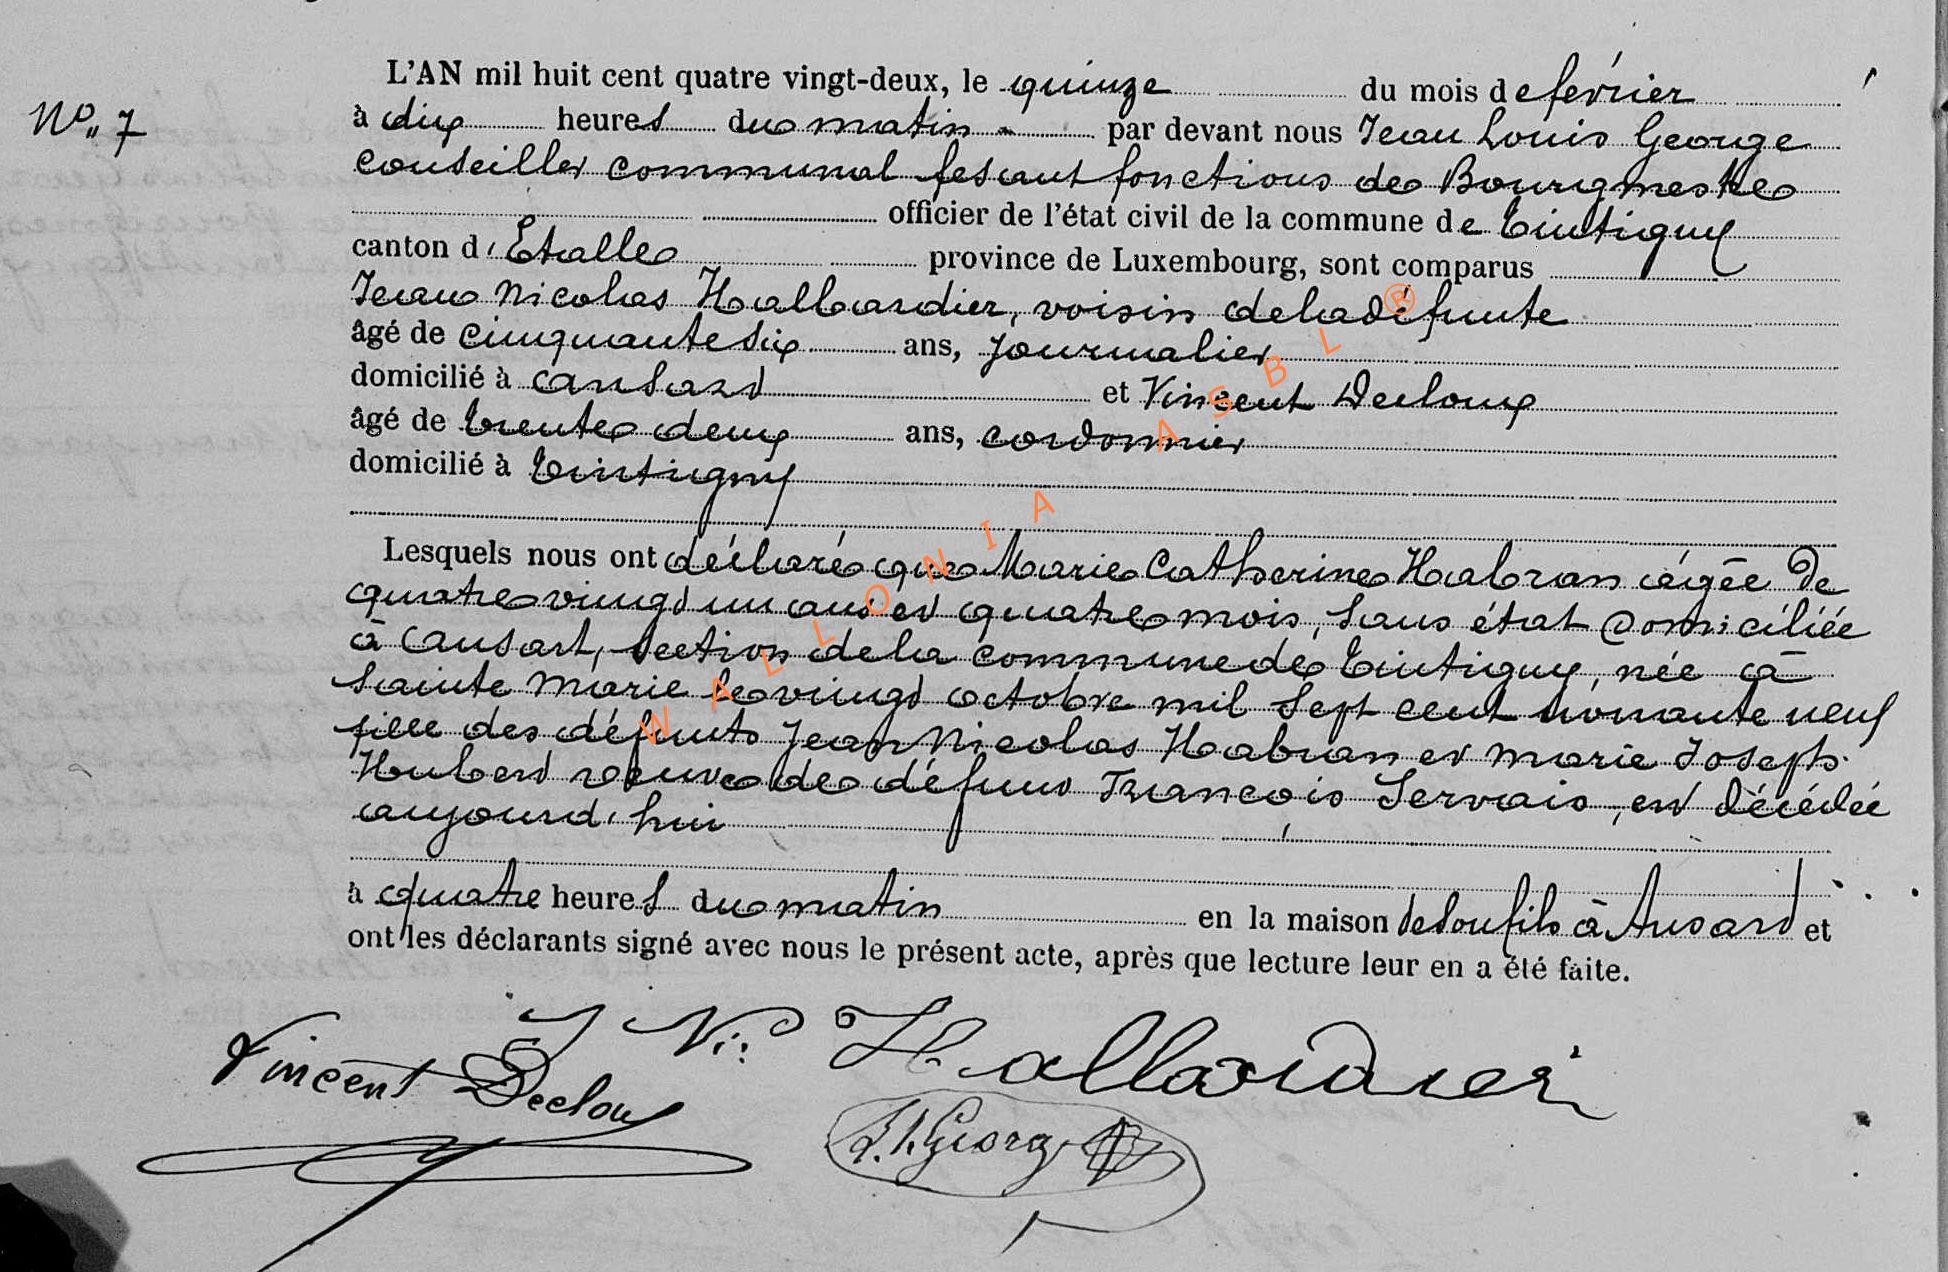 L'AN mil huit cent quatre vingt-deux, le quinze du mois de février
No. 7
à dix heures du matin par devant nous Jean Louis George
conseiller communal fesant fonctions de Bourgmestre
officier de l'état civil de la commune de Tintigny
canton d'Etalle province de Luxembourg, sont comparus
Jean Nicolas Hallardier, voisin de la défunte
âgé de cinquante six ans, journalier
domicilié à ansard et Vincent Decloux
âgé de trente deux ans, cordonnier
domicilié à Tintigny
Lesquels nous ont déclaré que Marie Catherine Habran âgée de
quatre vingt un ans et quatre mois, sans état domiciliée
à ansart, section de la commune de Tintigny, née à
Sainte Marie le vingt octobre mil sept cent nonante neuf
fille des défunts Jean Nicolas Habran et Marie Joseph
Hubert veuve de défunt François Servais, est décédée
aujourd'hui
à quatre heures du matin en la maison de son fils à Ansard et
ont les déclarants signé avec nous le présent acte, après que lecture leur en a été faite.
Vincent Decloux J Nas Hallardier
J. L. George
WALLONIA ASBL ®